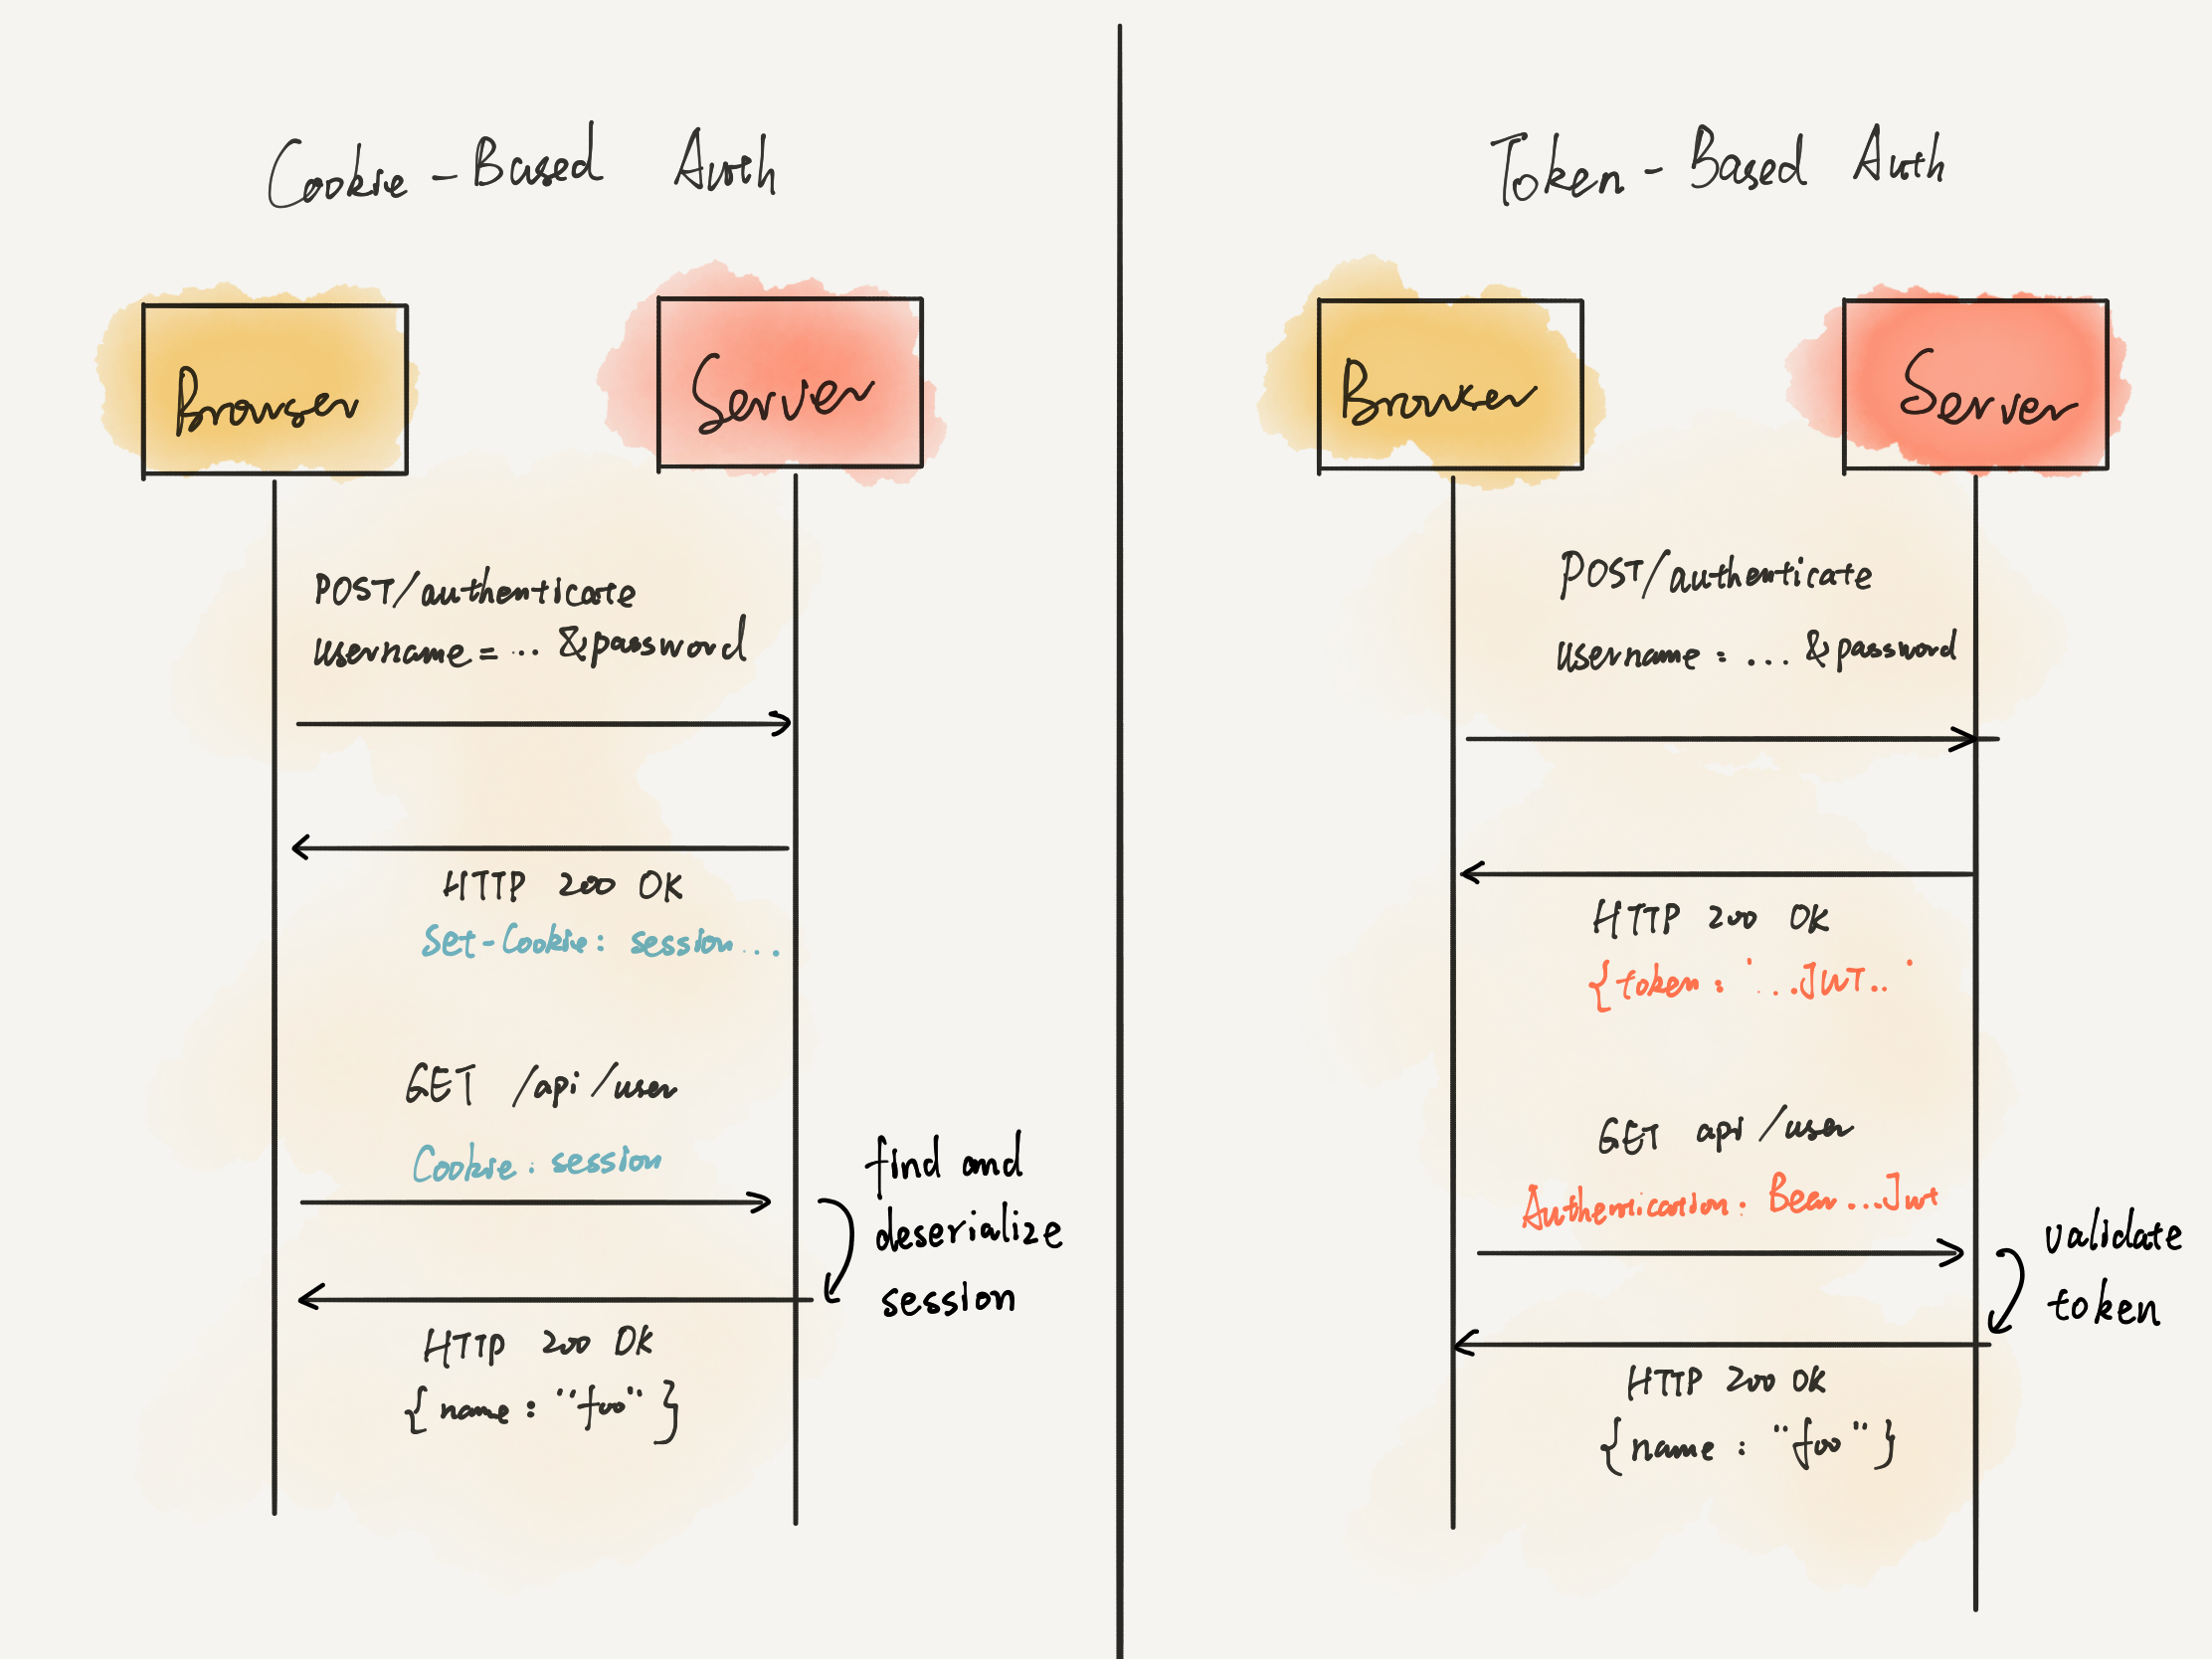 Cookie - Based Auth
Browser
Server
POST/authenticate
username = ... &password
HTTP 200 OK
Set-Cookie: session...
GET /api/user
Cookie: session
find and
deserialize
session
HTTP 200 OK
{ name: "foo" }
Token - Based Auth
Browser
Server
POST/authenticate
username : ... &password
HTTP 200 OK
{token: '...JWT..'
GET api/user
Authentication: Bear...Jwt
validate
token
HTTP 200 OK
{ name : "foo" }